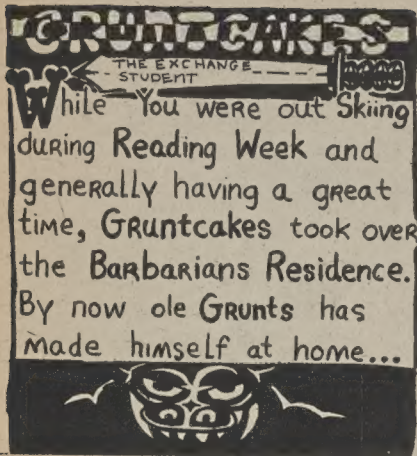 GRUNTCAKES
THE EXCHANGE
STUDENT
While You were out Skiing
during Reading Week and
generally having a great
time, Gruntcakes took over
the Barbarians Residence.
By now ole Grunts has
made himself at home...